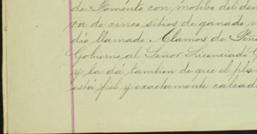 de Fomento con motivo del den
ra de cinco sitios de ganado m
día llamado Alamos de Peña
Gobierno, al Señor Licenciado G
y la dá, tambien de que el plan
está fiel y exactamente calcado